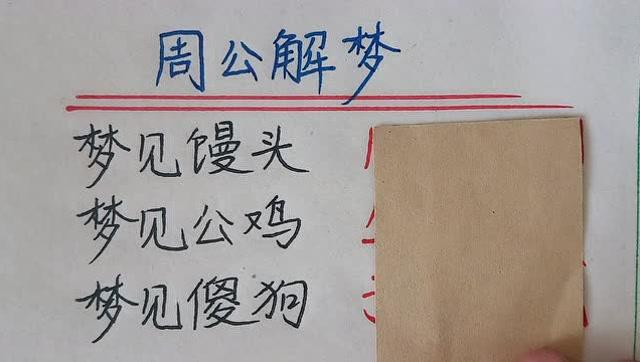 周公解梦
梦见馒头
梦见公鸡
梦见傻狗